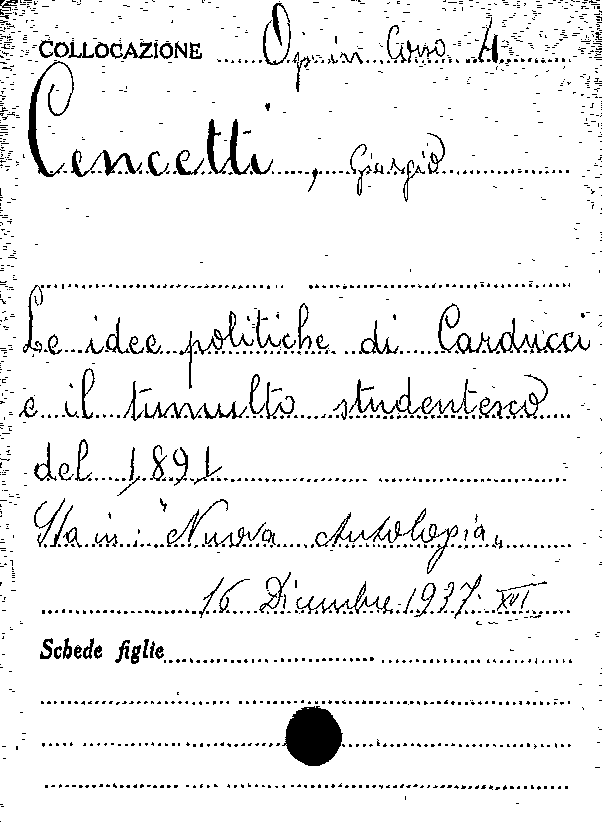 COLLOCAZIONE Opin Cons 4
Cencetti, Giorgio
Le idee politiche di Carducci
e il tumulto studentesco
del 1891
Sta in: "Nuova Antologia"
16 Dicembre 1937. XVI
Schede figlie